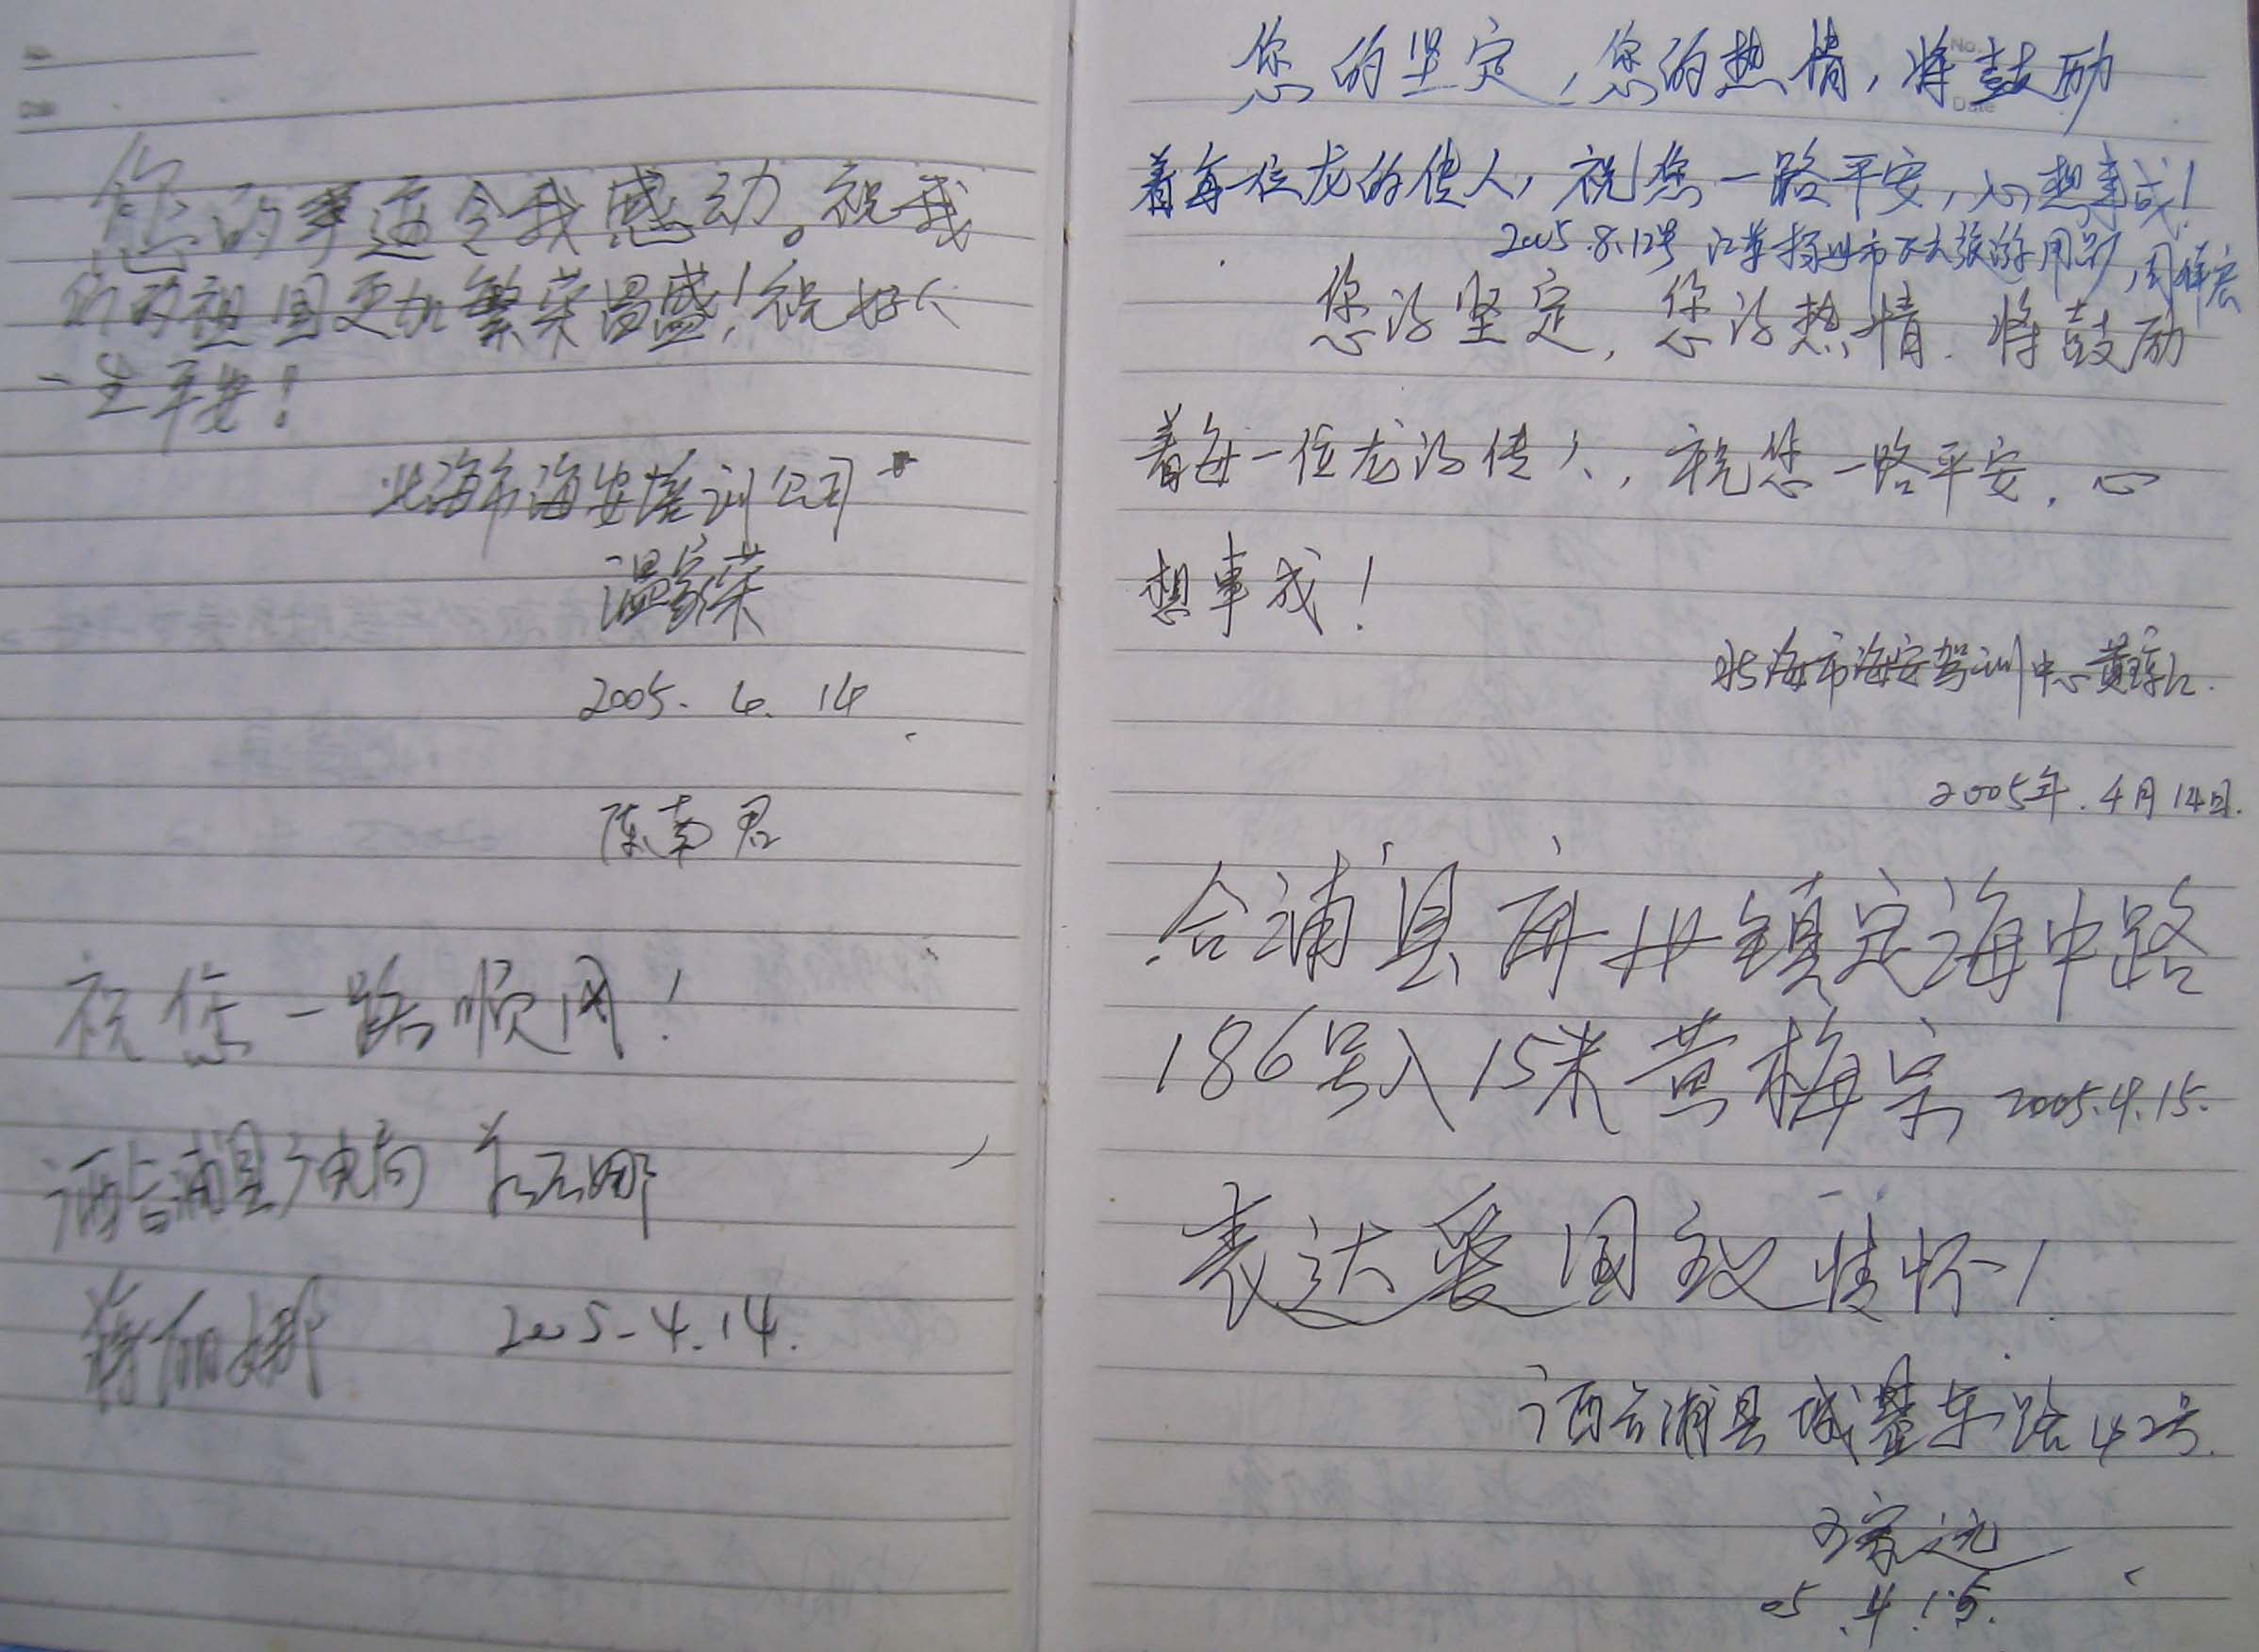 您的事迹令我感动。祝我
们的祖国更加繁荣昌盛！祝好人
一生平安！
北海市海安培训公司
温家荣
2005. 4. 14
陈南君
祝您一路顺风！
广西合浦县广电局
蒋丽娜 2005-4.14.
No.
Date
您的坚定，您的热情，将鼓励
着每一位龙的传人，祝您一路平安，心想事成！
2005.8.12号 江苏扬州市 旅游用品厂 周
您的坚定，您的热情．将鼓励
着每一位龙的传人，祝您一路平安．心
想事成！
北海市海安驾训中心 黄
2005年．4月14日．
合浦县 镇定海中路
186号入15米 黄梅 2005.4.15.
表达爱国主义情怀！
广西合浦县城 东路42号．
远
05.4.15.